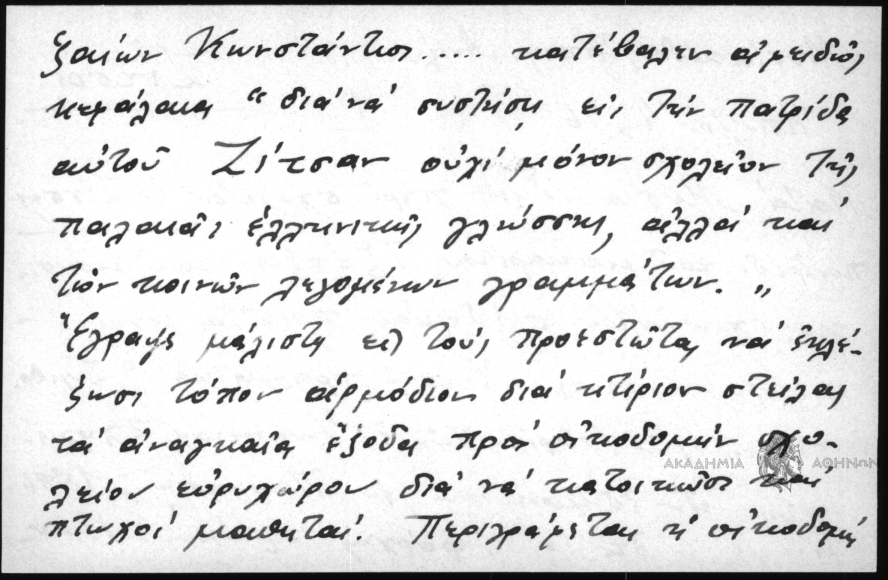 ξαίων Κωνστάντιο .... κατέβαλεν
κεφάλαια " διά νά συστήση εἰς τήν πατρίδα
αὐτοῦ Ζίτσαν οὐχί μόνον σχολεῖον τῆς
παλαιᾶς ἑλληνικῆς γλώσσης, ἀλλά καί
τῶν κοινῶν λεγομένων γραμμάτων. "
Ἔγραψε μάλιστα εἰς τούς προεστῶτας νά ἐκλέ-
ξωσι τόπον ἁρμόδιον διά κτίριον στείλας
τά ἀναγκαῖα ἔξοδα πρός οἰκοδομήν σχο-
λείου εὐρυχώρου διά νά κατοικῶσι καί
πτωχοί μαθηταί. Περιγράφεται ἡ οἰκοδομή
ΑΚΑΔΗΜΙΑ ΑΘΗΝΩΝ